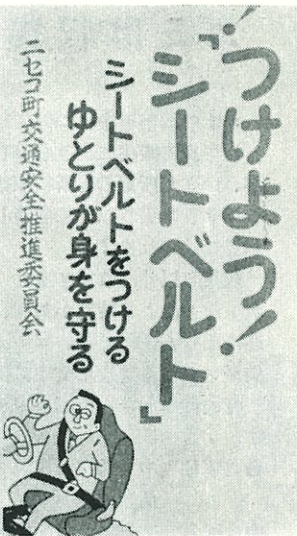 !つけよう!
『シートベルト』
シートベルトをつける
ゆとりが身を守る
ニセコ町交通安全推進委員会